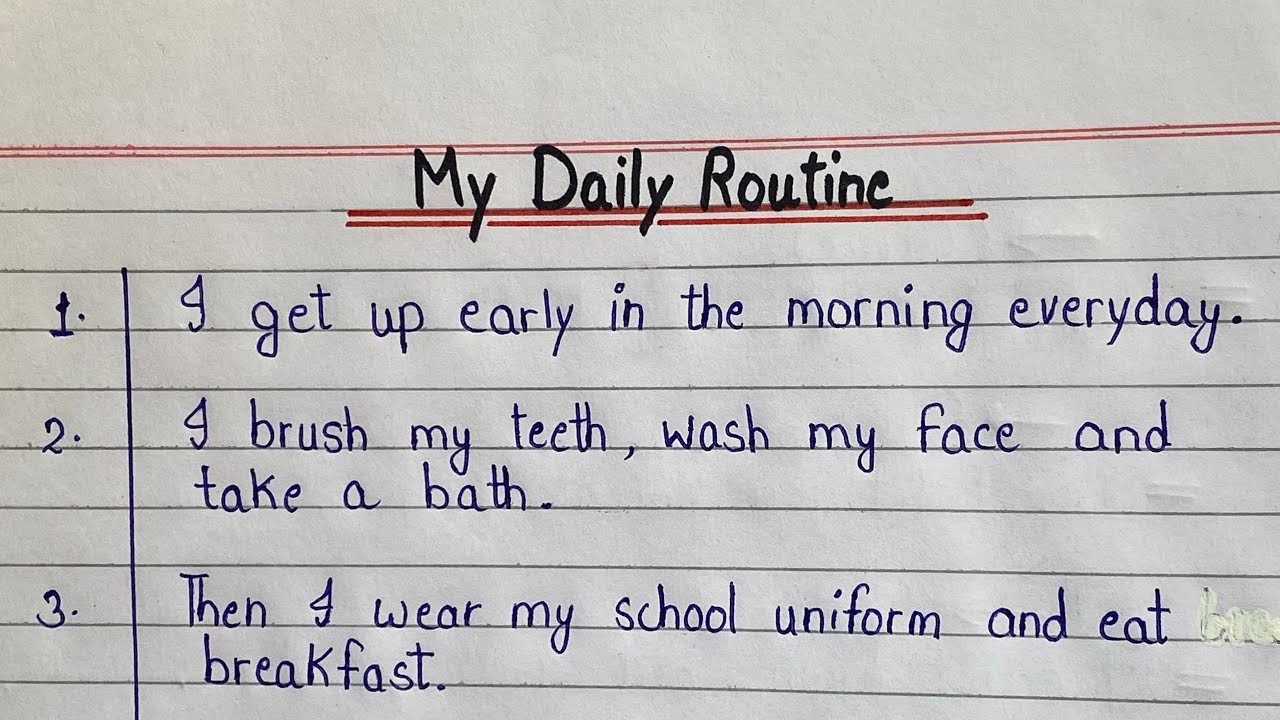 My Daily Routine
1. I get up early in the morning everyday.
2. I brush my teeth, wash my face and
take a bath.
3. Then I wear my school uniform and eat
breakfast.